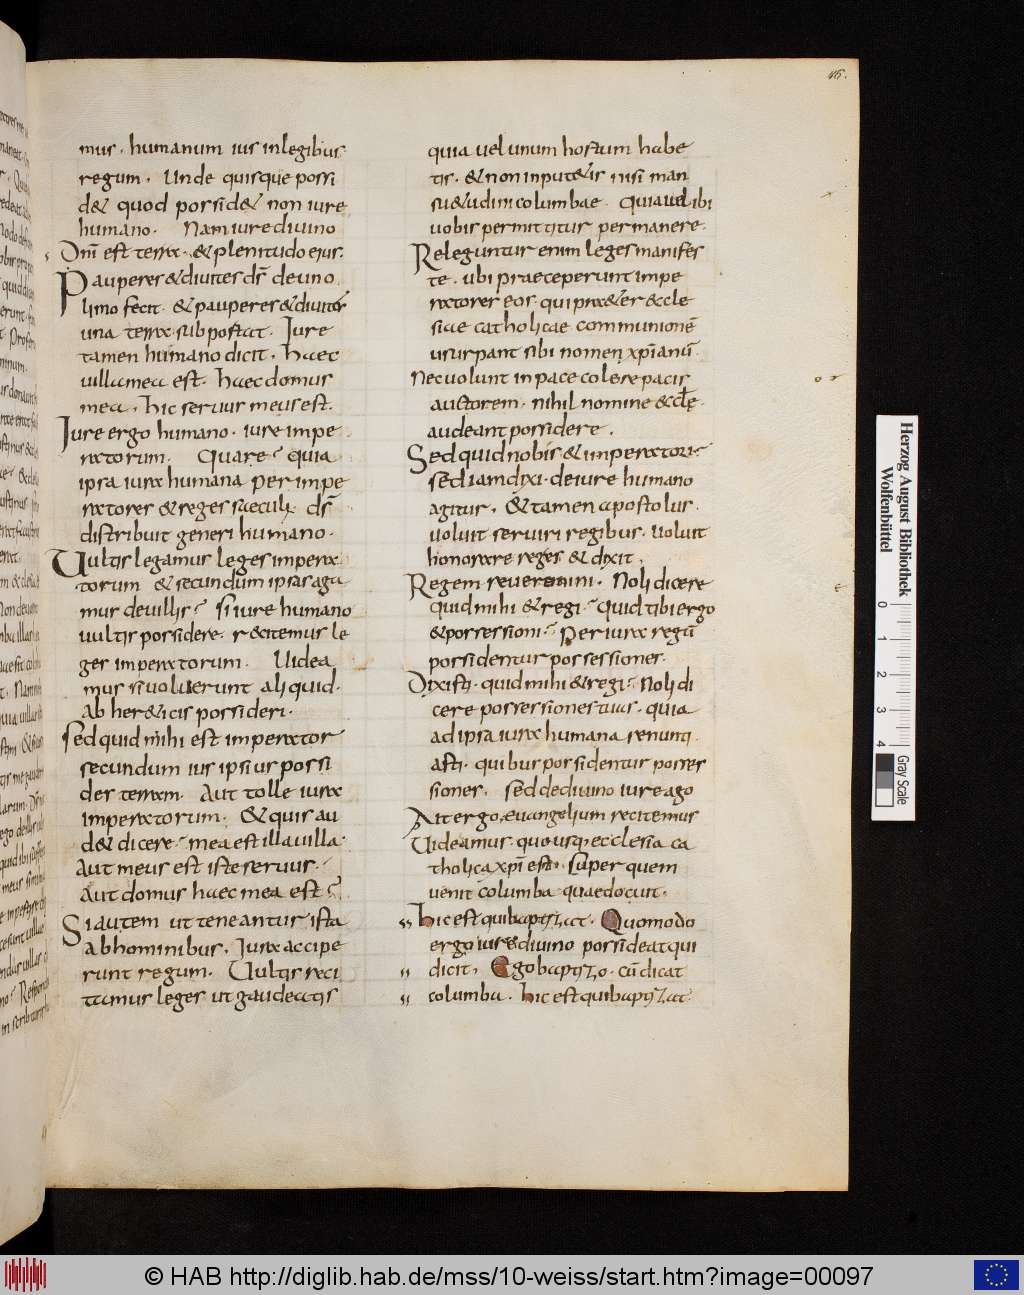 45.
mus. humanum ius in legibus
regum. Unde quisque possi
det quod possidet non iure
humano. Nam iure divino
Dnī est terra. & plenitudo eius.
Pauperes & divites ds̄ de uno
limo fecit. & pauperes & divites
una terra subportat. Iure
tamen humano dicit. haec
villa mea est. haec domus
mea. hic servus meus est.
Iure ergo humano. iure impe
ratorum. Quare? quia
ipsa iura humana per impe
ratores & reges saeculi ds̄
distribuit generi humano.
Vultis legamus leges impera
torum & secundum ipsas aga
mus de villis? si iure humano
vultis possidere. recitemus le
ges imperatorum. Videa
mus si voluerunt aliquid.
Ab hereticis possideri.
Sed quid mihi est imperator
secundum ius ipsius possi
des terram. Aut tolle iura
imperatorum. & quis au
det dicere? mea est illa villa.
Aut meus est iste servus.
Aut domus haec mea est?
Si autem ut teneantur ista
ab hominibus. Iura accipe
runt regum. Vultis reci
tamus leges ut gaudeatis
quia vel unum hortum habe
tis. & non inputetis nisi man
suetudini columbae. Quia vel ibi
vobis permittitur permanere.
Releguntur enim leges manifes
te. ubi praeceperunt impe
ratores eos. qui praeter eccle
siae catholicae communionē
usurpant sibi nomen xp̄ianū.
nec volunt in pace colere pacis
auctorem. nihil nomine eccle
audeant possidere.
Sed quid nobis & imperatori?
sed iam dixi. de iure humano
agitur. & tamen apostolus.
voluit serviri regibus. voluit
honorare reges & dixit.
Regem reveremini. Noli dicere
quid mihi & regi? Quid tibi ergo
& possessioni? Per iura regū
possidentur possessiones.
Dixisti. quid mihi & regi? Noli di
cere possessiones tuas. quia
ad ipsa iura humana renunti
asti. quibus possidentur posses
siones. Sed de divino iure ago
Ait ergo, evangelium recitemus
Videamus. quousq; ecclesia ca
tholica xp̄i est. super quem
venit columba quae docuit.
hic est qui baptizat. Quomodo
ergo iure divino possideat qui
dicit. Ego baptizo. cū dicat
columba. hic est qui baptizat.
Herzog August Bibliothek
Wolfenbüttel
0 1 2 3 4
Gray Scale
© HAB http://diglib.hab.de/mss/10-weiss/start.htm?image=00097